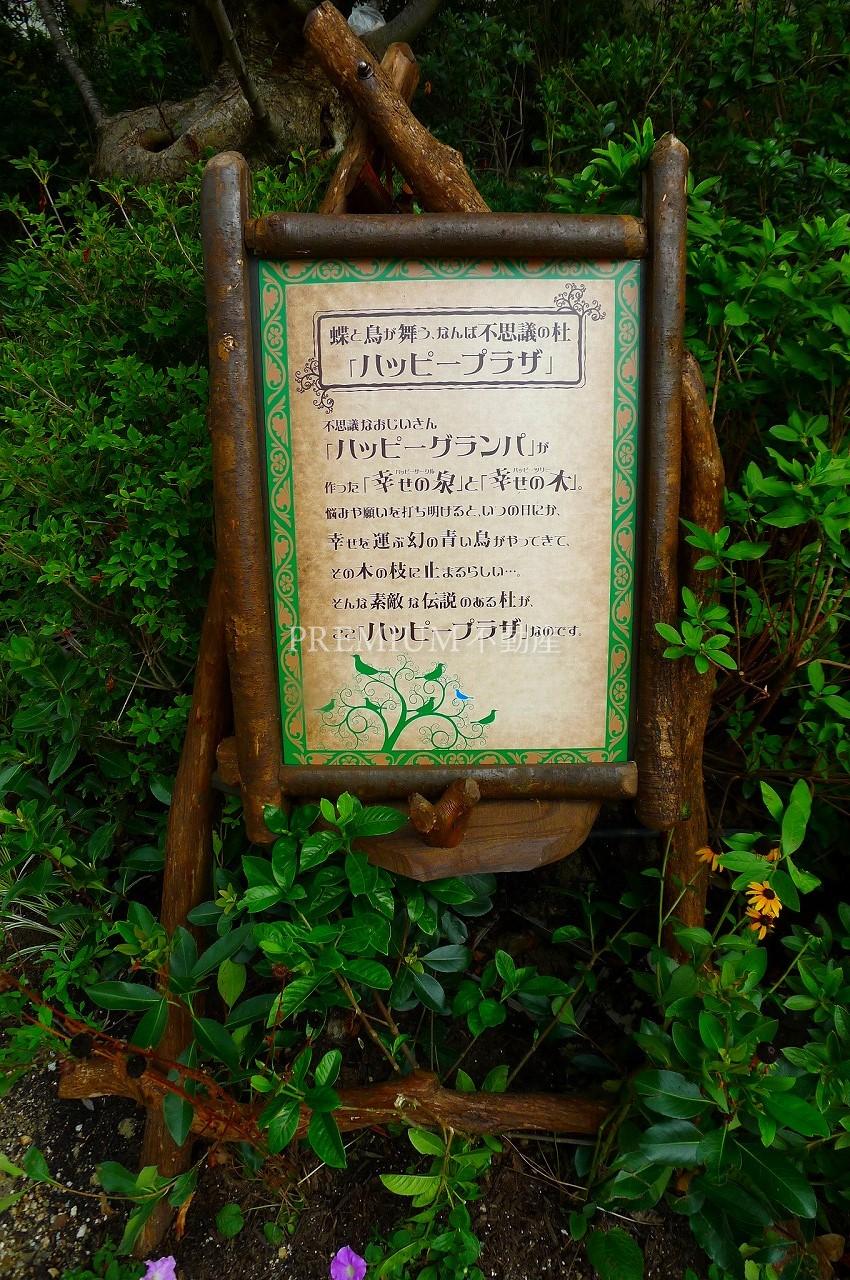 蝶と鳥が舞う、なんば不思議の杜
「ハッピープラザ」
不思議なおじいさん
「ハッピーグランパ」が
ハッピーサークル ハッピーツリー
作った「幸せの泉」と「幸せの木」。
悩みや願いを打ち明けると、いつの日にか、
幸せを運ぶ幻の青い鳥がやってきて、
その木の枝に止まるらしい…。
そんな素敵な伝説のある杜が、
ここ「ハッピープラザ」なのです。
PREMIUM 不動産